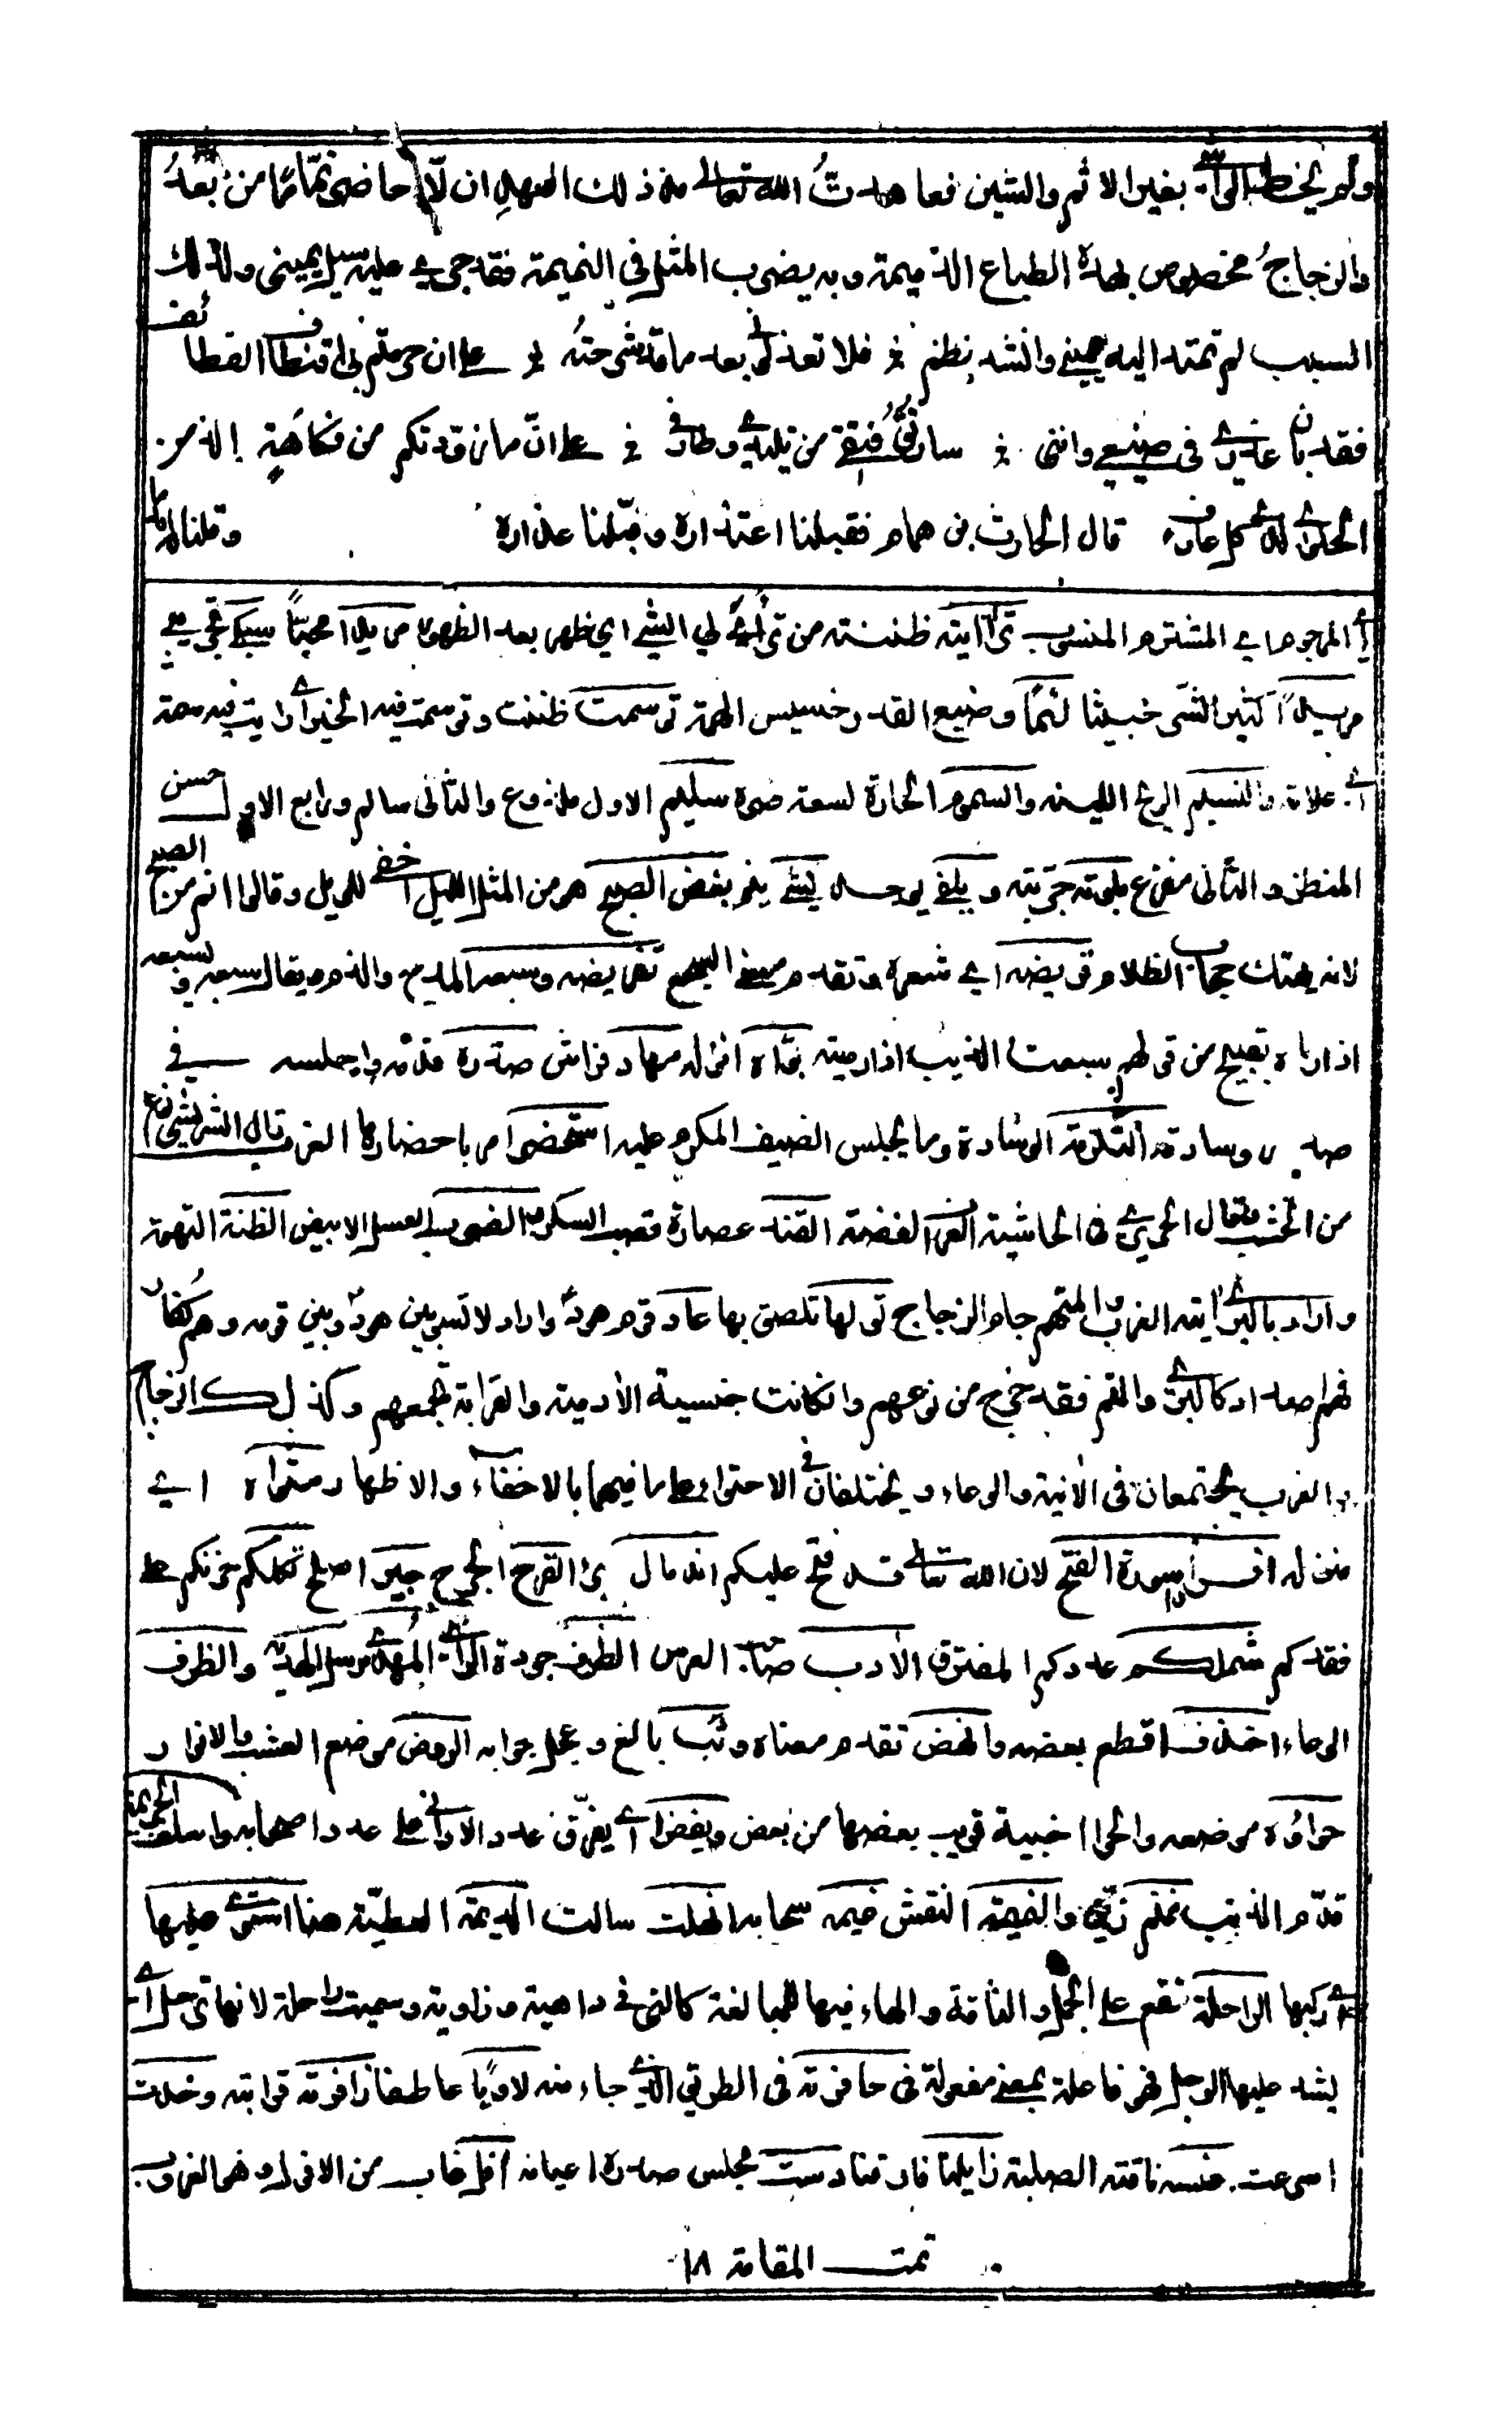 ولم يخط الراي بغير الاثم والشين فعاهدتُ الله تعالى مذ ذلك العهد ان لّا احاضر نمّامًا من بعدُ
والزجاجُ مخصوص بهذه الطباع الذميمة وبه يضرب المثل في النميمة فقد جرى عليه سيل يميني ولذلك
السبب لم تمتد اليه يميني وانشد نظم فلا تعذلوني بعد ما قد شرحته على ان حرمتم بي اقتطاف القطائف
فقد بان عذري في صنيعي وانني سارتق فتقي من تليدي وطارفي على انّ ما زودتكم من فكاهة الذ من
الحلوى لدى كل عارف قال الحارث بن همام فقبلنا اعتذاره وقبّلنا عذاره وقلنا له
المنسوب ظننته من لي الشيء اي ظهر بعد الظهور
كثير الشر خبيثا لئيما وضيع القدر خسيس الهمة توسمت ظننت وتوسمت فيه الخير اي رايت فيه سمة
اي علامة والنسيم الريح اللينة والسموم الحارة لسعة ضره سليم الاول ملذوع والثاني سالم ورابع الاول حسن
المنظر والثاني مفزع بلوته جربته ويلفى يوجد ينم بغض الصبح هو من المثل الليل اخفى للويل وقالوا انم من الصبح
لانه يهتك حجاب الظلام قريضه اي شعره وتقدم تقريضه وسبعه المدح والذم يقال سبعه
اذا رماه بقبيح من قولهم سبعت الذيب اذا رميته بوّاه انزله مهاد فراش صدره قدّمه واجلسه في
صدر وسادته التكرمة الوسادة وما يجلس الضيف المكرم عليه استحضر امر باحضارها الغرب قال الشريشي نوع
من الخشب وقال الحريري في الحاشية الغرب الفضة القند عصارة قصب السكر الضرب العسل الابيض الظنة التهمة
واراد بالبري انية الغرب والمتهم جام الزجاج قولها تلصق بها عاد قوم هود واراد لا تسو بين هود وبين قومه وهم كفار
فقد خرج من نوعهم وان كانت جنسية الادمية والقرابة تجمعهم وكذلك الزجاج
والغرب يجتمعان في الانية والوعاء ويختلفان في الاحتواء على ما فيهما بالاخفاء والاظهار مثواه اي
منزله اقرا سورة الفتح لان الله تعالى قد فتح عليكم اندمال برئ القرح الجرح جبر اصلح ثكلكم حزنكم على
فقدكم شملكم عددكم المفترق الادب الظرف جودة الراي المهدي مرسل الهدية والظرف
الوعاء احذف اقطع بعضه وانهض تقدم معناه وثب بالغ وعجل جوابه الروض موضع العشب والانوار
حواؤه موضعه والحواء اخبية قريب بعضها من بعض ويفض اي يفرّق عدد الاواني على عدد اصحابه
قدّم الذنب نمنم زيّن والنمنمة النقش غيمه سحابه انهلت سالت الديمة العطيّة استوى عليها
اي ركبها الراحلة تقع على الجمل والناقة والهاء فيها للمبالغة كالتي في داهية وراوية وسميت راحلة لانها ترحل اي
يشد عليها الرحل فهي فاعلة بمعنى مفعولة في حافرته في الطريق الذي جاء منه لاويًا عاطفا زافرته قرابته وخدت
اسرعت عنسه ناقته الصلبة زايلنا فارقنا دست مجلس صدره اعيانه افل غاب من الافول وهو الغروب
تمت المقامة ١٨